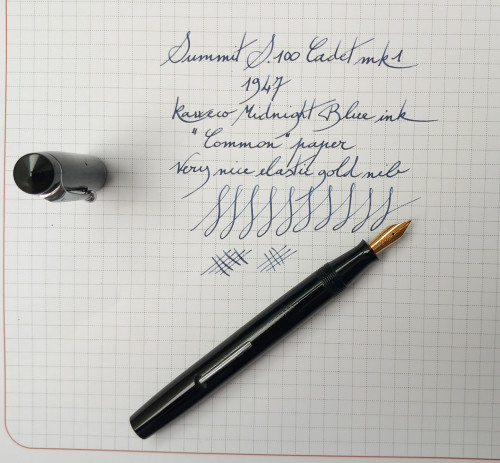 Summit S.100 Cadet mk1
1947
Kaweco Midnight Blue ink
"Common" paper
Very nice elastic gold nib